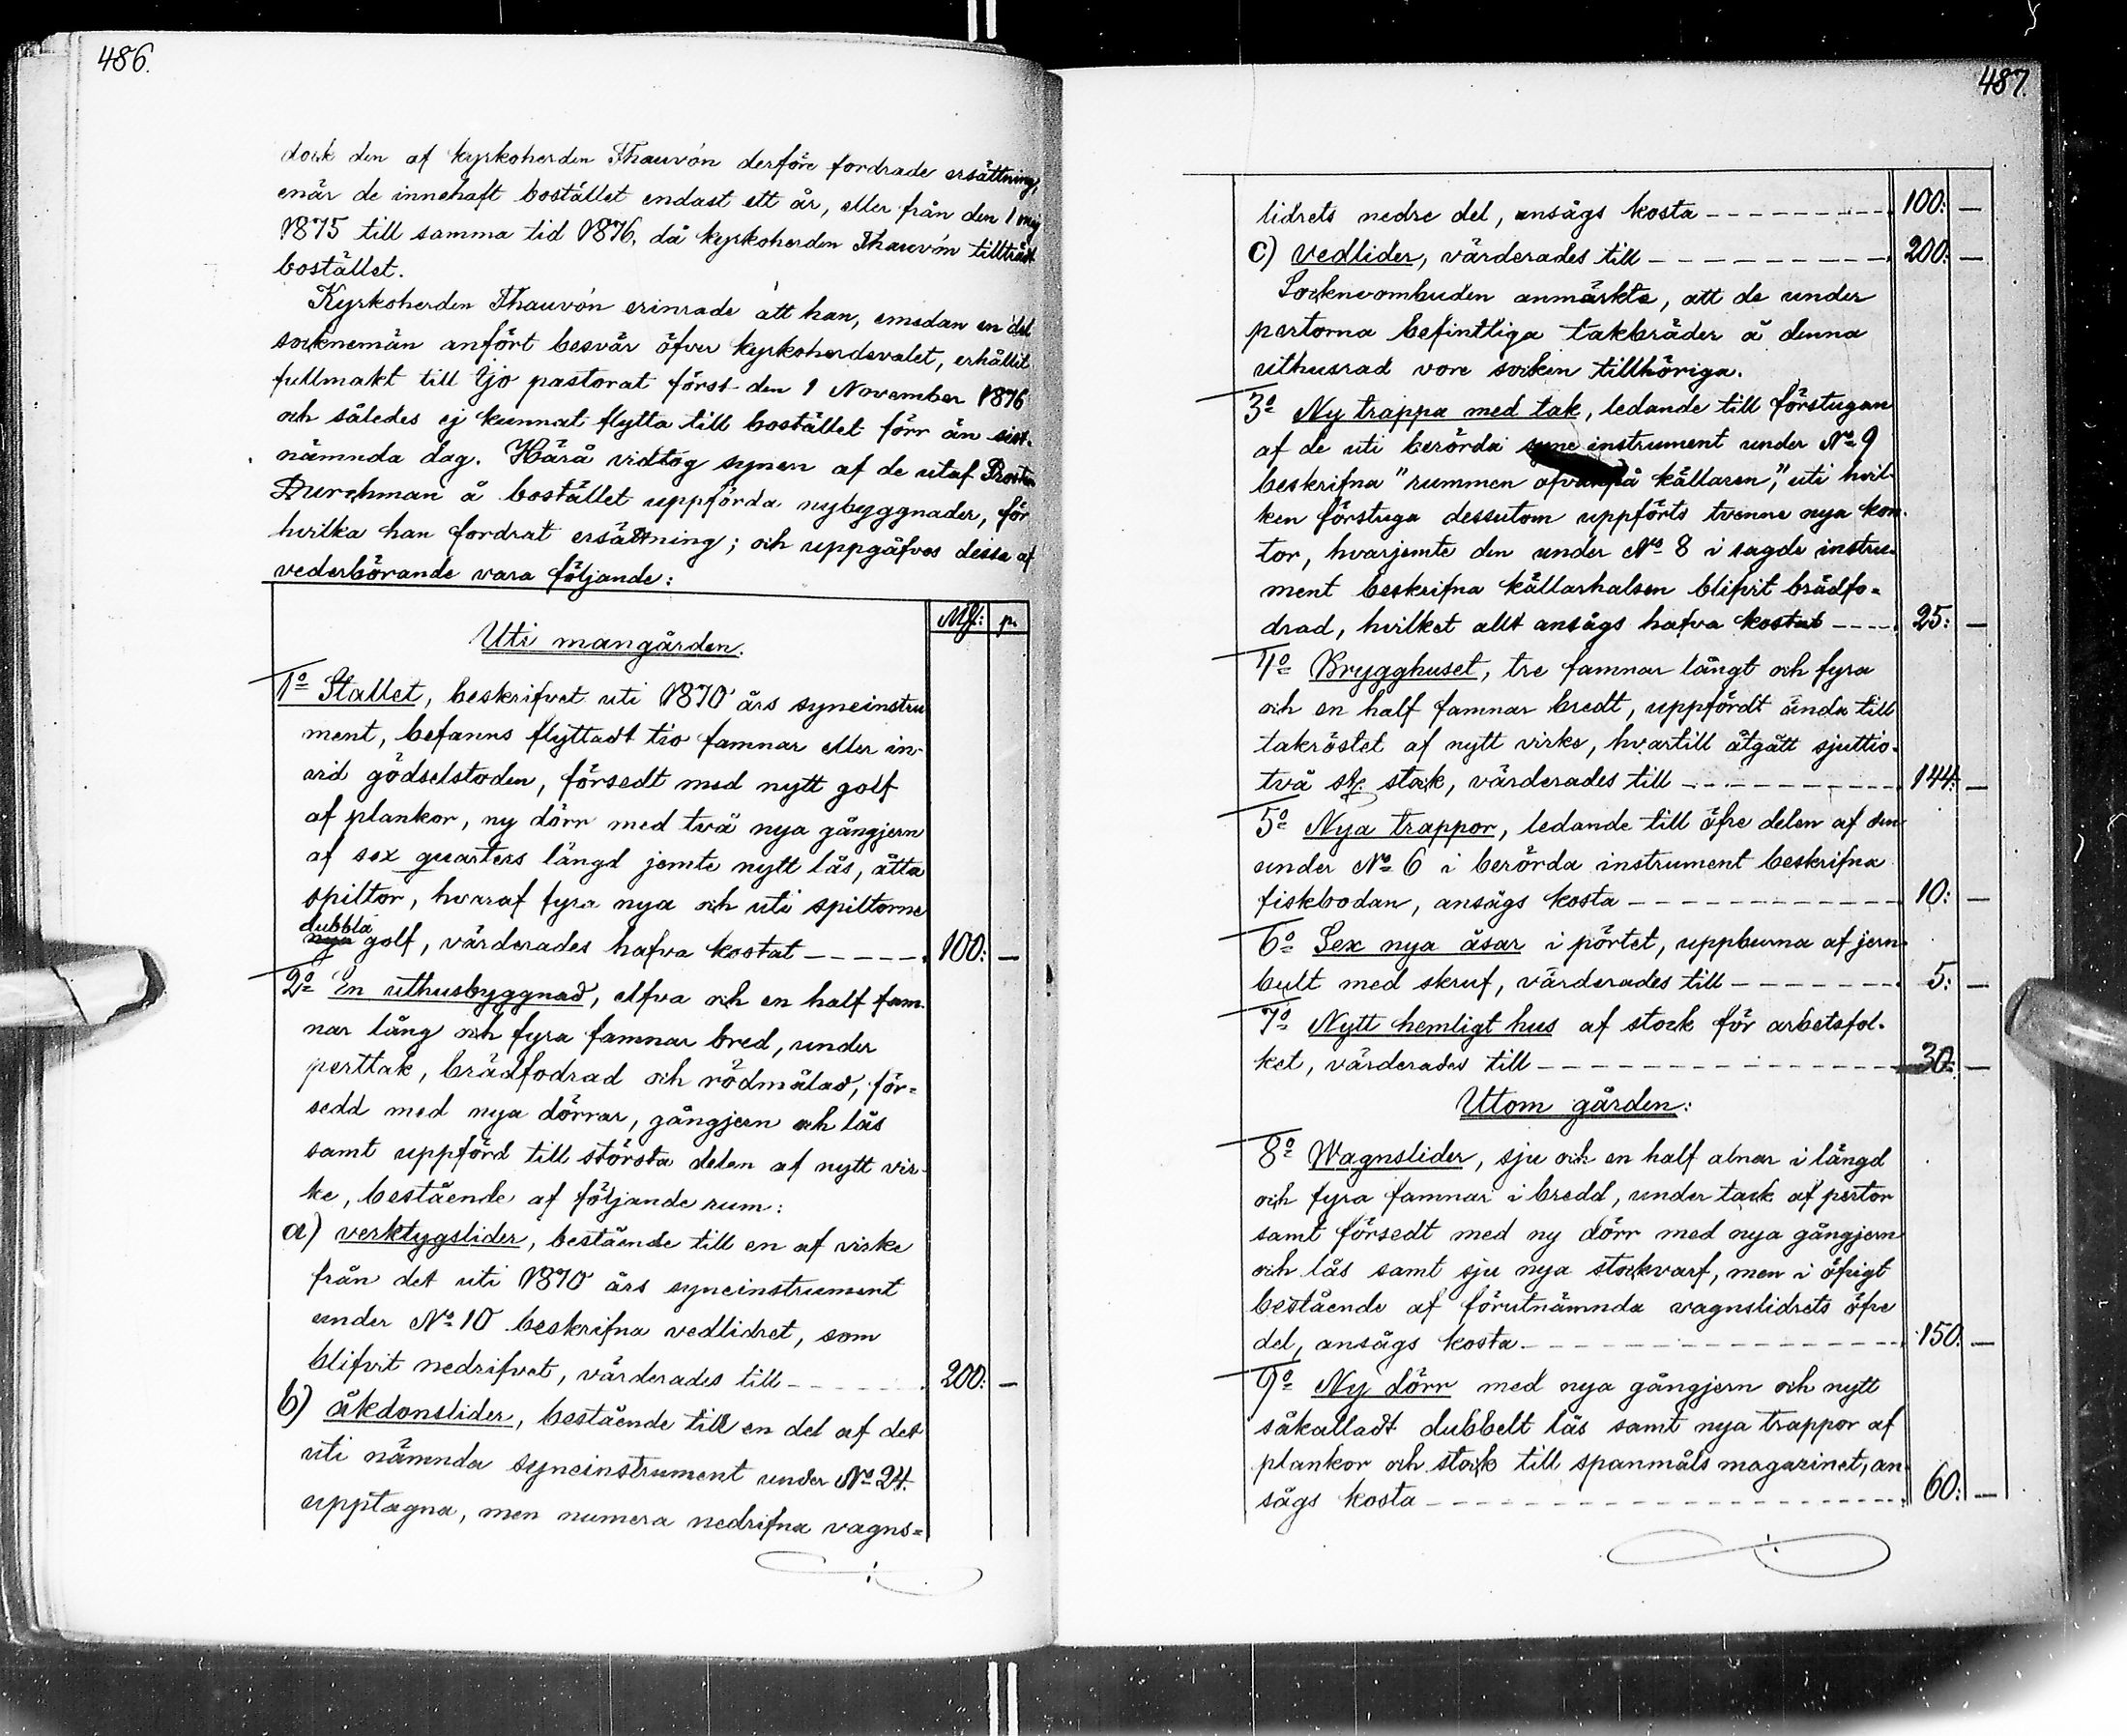 486.
dock den af kyrkoherden Thauvón derföre fordrade ersättning,
enär de innehaft bostället endast ett år, eller från den 1 maj
1875 till samma tid 1876, då kyrkoherden Thauvón tillträdt
bostället.
Kyrkoherden Thauvón erinrade att han, emedan en del
socknemän anfört besvär öfver kyrkoherdevalet, erhållit
fullmakt till Ijo pastorat först den 1 November 1876
och således ej kunnat flytta till bostället förr än sist-
nämnda dag. Härå vidtog synen af de utaf Prosten
Durchman å bostället uppförda nybyggnader, för
hvilka han fordrat ersättning; och uppgåfvos dessa af
vederbörande vara följande:
Mf: p.
Uti mangården.
1º Stallet, beskrifvet uti 1870 års syneinstru
ment, befanns flyttadt tio famnar eller in-
vid gödselstoden, försedt med nytt golf
af plankor, ny dörr med två nya gångjern
af sex quarters längd jemte nytt lås, åtta
spiltor, hvaraf fyra nya och uti spiltorne
dubbla
nya golf, värderades hafva kostat ----- 100: —
2º En uthusbyggnad, elfva och en half fam-
nar lång och fyra famnar bred, under
perttak, brädfodrad och rödmålad, för-
sedd med nya dörrar, gångjern och lås
samt uppförd till största delen af nytt vir-
ke, bestående af följande rum:
a) verktygslider, bestående till en af virke
från det uti 1870 års syneinstrument
under Nº 10 beskrifna vedlidret, som
blifvit nedrifvet, värderades till ------ 200: —
b) åkdonslider, bestående till en del af det
uti nämnda syneinstrument under Nº 24.
upptagna, men numera nedrifna vagns-
487.
lidrets nedre del, ansågs kosta -------- 100: —
c) Vedlider, värderades till --------- 200: —
Sockneombuden anmärkte, att de under
pertorna befintliga takbräder å denna
uthusrad vore socken tillhöriga.
3º Ny trappa med tak, ledande till förstugan
af de uti berörda syneinstrument under Nº 9
beskrifna "rummen ofvanpå källaren," uti hvil-
ken förstuga dessutom uppförts tvenne nya kon-
tor, hvarjemte den under Nº 8 i sagde instru-
ment beskrifna källarhalsen blifvit brädfo-
drad, hvilket allt ansågs hafva kostat ---- 25: —
4º Brygghuset, tre famnar långt och fyra
och en half famnar bredt, uppfördt ända till
takröstet af nytt virke, hvartill åtgått sjuttio-
två st. stock, värderades till --------- 144: —
5º Nya trappor, ledande till öfre delen af den
under Nº 6 i berörda instrument beskrifna
fiskbodan, ansågs kosta ----------- 10: —
6º Sex nya åsar i pörtet, uppburna af jern-
bult med skruf, värderades till ------- 5: —
7º Nytt hemligt hus af stock för arbetsfol-
ket, värderades till -------------- 30: —
Utom gården:
8º Wagnslider, sju och en half alnar i längd
och fyra famnar i bredd, under tack af pertor
samt försedt med ny dörr med nya gångjern
och lås samt sju nya stockvarf, men i öfrigt
bestående af förutnämnda vagnslidrets öfre
del, ansågs kosta --------------- 150: —
9º Ny dörr med nya gångjern och nytt
såkalladt dubbelt lås samt nya trappor af
plankor och stock till spanmåls magazinet, an-
sågs kosta ------------------ 60: —